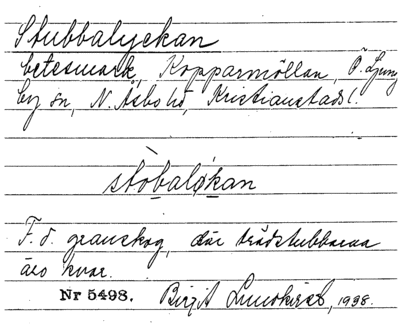 Stubbalyckan
betesmark, Kopparmöllan, Ö. Ljung
by sn, N. Åsbo hd, Kristianstads l.
stòbaløkan
F. d. granskog, där trädstubbarna
äro kvar.
Nr 5498. Birgit 1938.